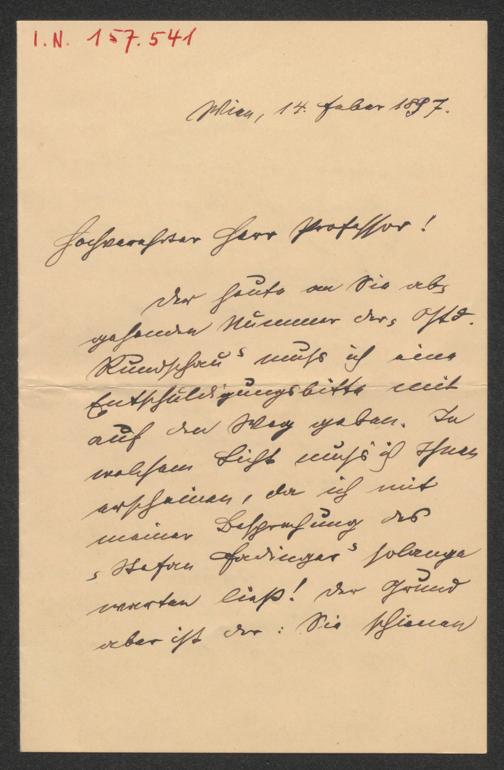 I.N. 157.541
Wien, 14. Feber 1897.
Hochverehrter Herr Professor!
Der heute an Sie ab-
gehenden Nummer der „Ostd.
Rundschau“ muß ich eine
Entschuldigungsbitte mit
auf den Weg geben. In
welchem Licht muß ich Ihnen
erscheinen, da ich mit
meiner Besprechung des
„Stefan Fadinger“ solange
warten ließ! Der Grund
aber ist der: Sie schienen